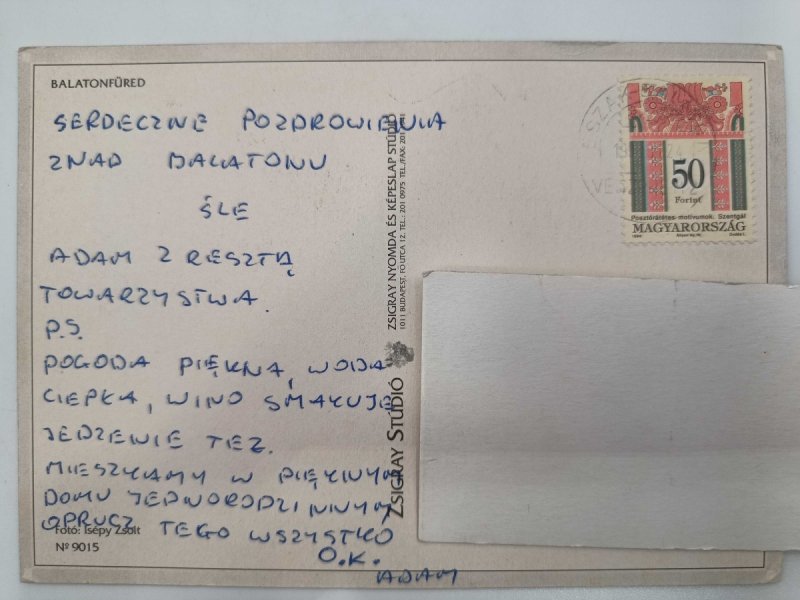 BALATONFÜRED
SERDECZNE POZDROWIENIA
ZNAD BALATONU
ŚLE
ADAM Z RESZTĄ
TOWARZYSTWA.
P.S.
POGODA PIĘKNA, WODA
CIEPŁA, WINO SMAKUJE
JEDZENIE TEŻ.
MIESZKAMY W PIĘKNYM
DOMU JEDNORODZINNYM
OPRUCZ TEGO WSZYSTKO
O.K.
ADAM
Fotó: Isépy Zsolt
Nº 9015
ZSIGRAY STÚDIÓ
ZSIGRAY NYOMDA ÉS KÉPESLAP STÚDIÓ
1011 BUDAPEST, FŐ UTCA 12. TEL.: 201 0975 TEL./FAX: 201
50
Forint
Posztórátétes motívumok. Szentgál
MAGYARORSZÁG
1994